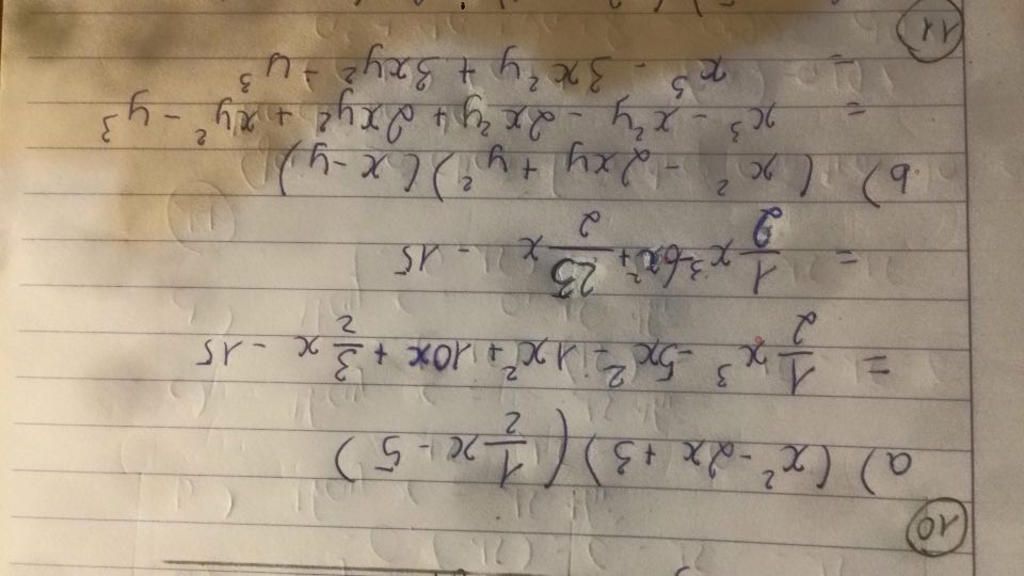 10
a) (x² - 2x + 3) (1/2 x - 5)
= 1/2 x³ - 5x² - 1x² + 10x + 3/2 x - 15
= 1/2 x³ - 6x² + 23/2 x - 15
b) (x² - 2xy + y²) (x - y)
= x³ - x²y - 2x²y + 2xy² + xy² - y³
= x³ - 3x²y + 3xy² + y³
11